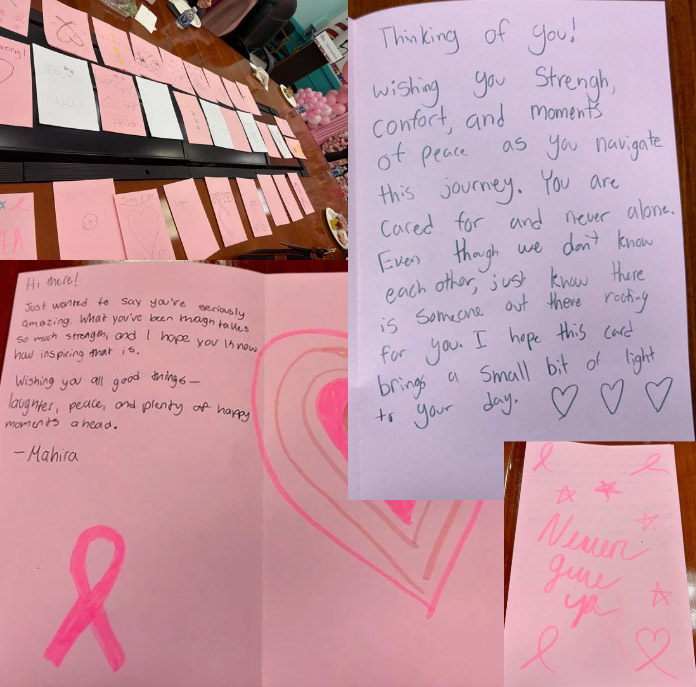 Thinking of you!
wishing you Strengh,
confort, and moments
of peace as you navigate
this journey. You are
cared for and never alone.
Even though we don't know
each other, just know there
is someone out there rooting
for you. I hope this card
brings a small bit of light
to your day.
Hi there!
Just wanted to say you're seriously
amazing. What you've been though takes
so much strength, and I hope you know
how inspiring that is.
Wishing you all good things—
laughter, peace, and plenty of happy
moments ahead.
—Mahira
Never
give
up